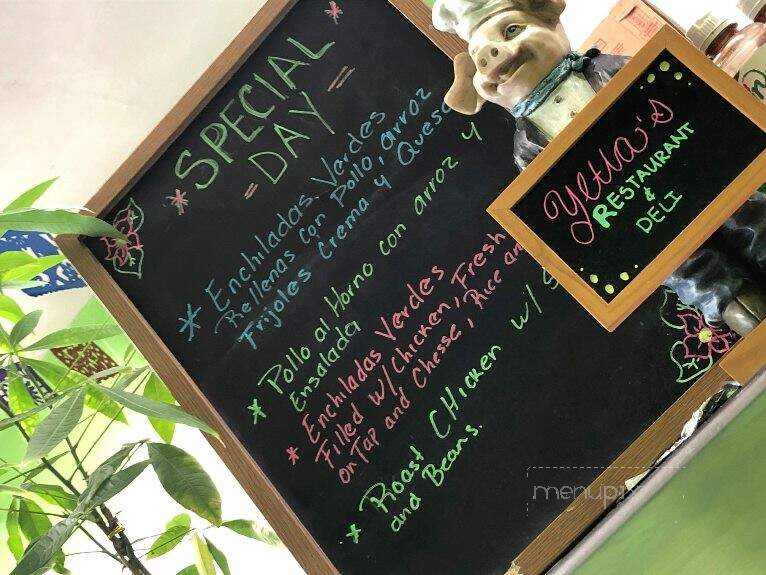 SPECIAL
= DAY =
* Enchiladas Verdes
Rellenas Con Pollo, arroz
Frijoles Crema y Queso
* Pollo al Horno con arroz y
Ensalada
* Enchiladas Verdes
Filled w/Chicken, Fresh
on Tap and Chesse, Rice an
* Roast CHicken w/
and Beans.
Yetta's
RESTAURANT
&
DELI
menupix